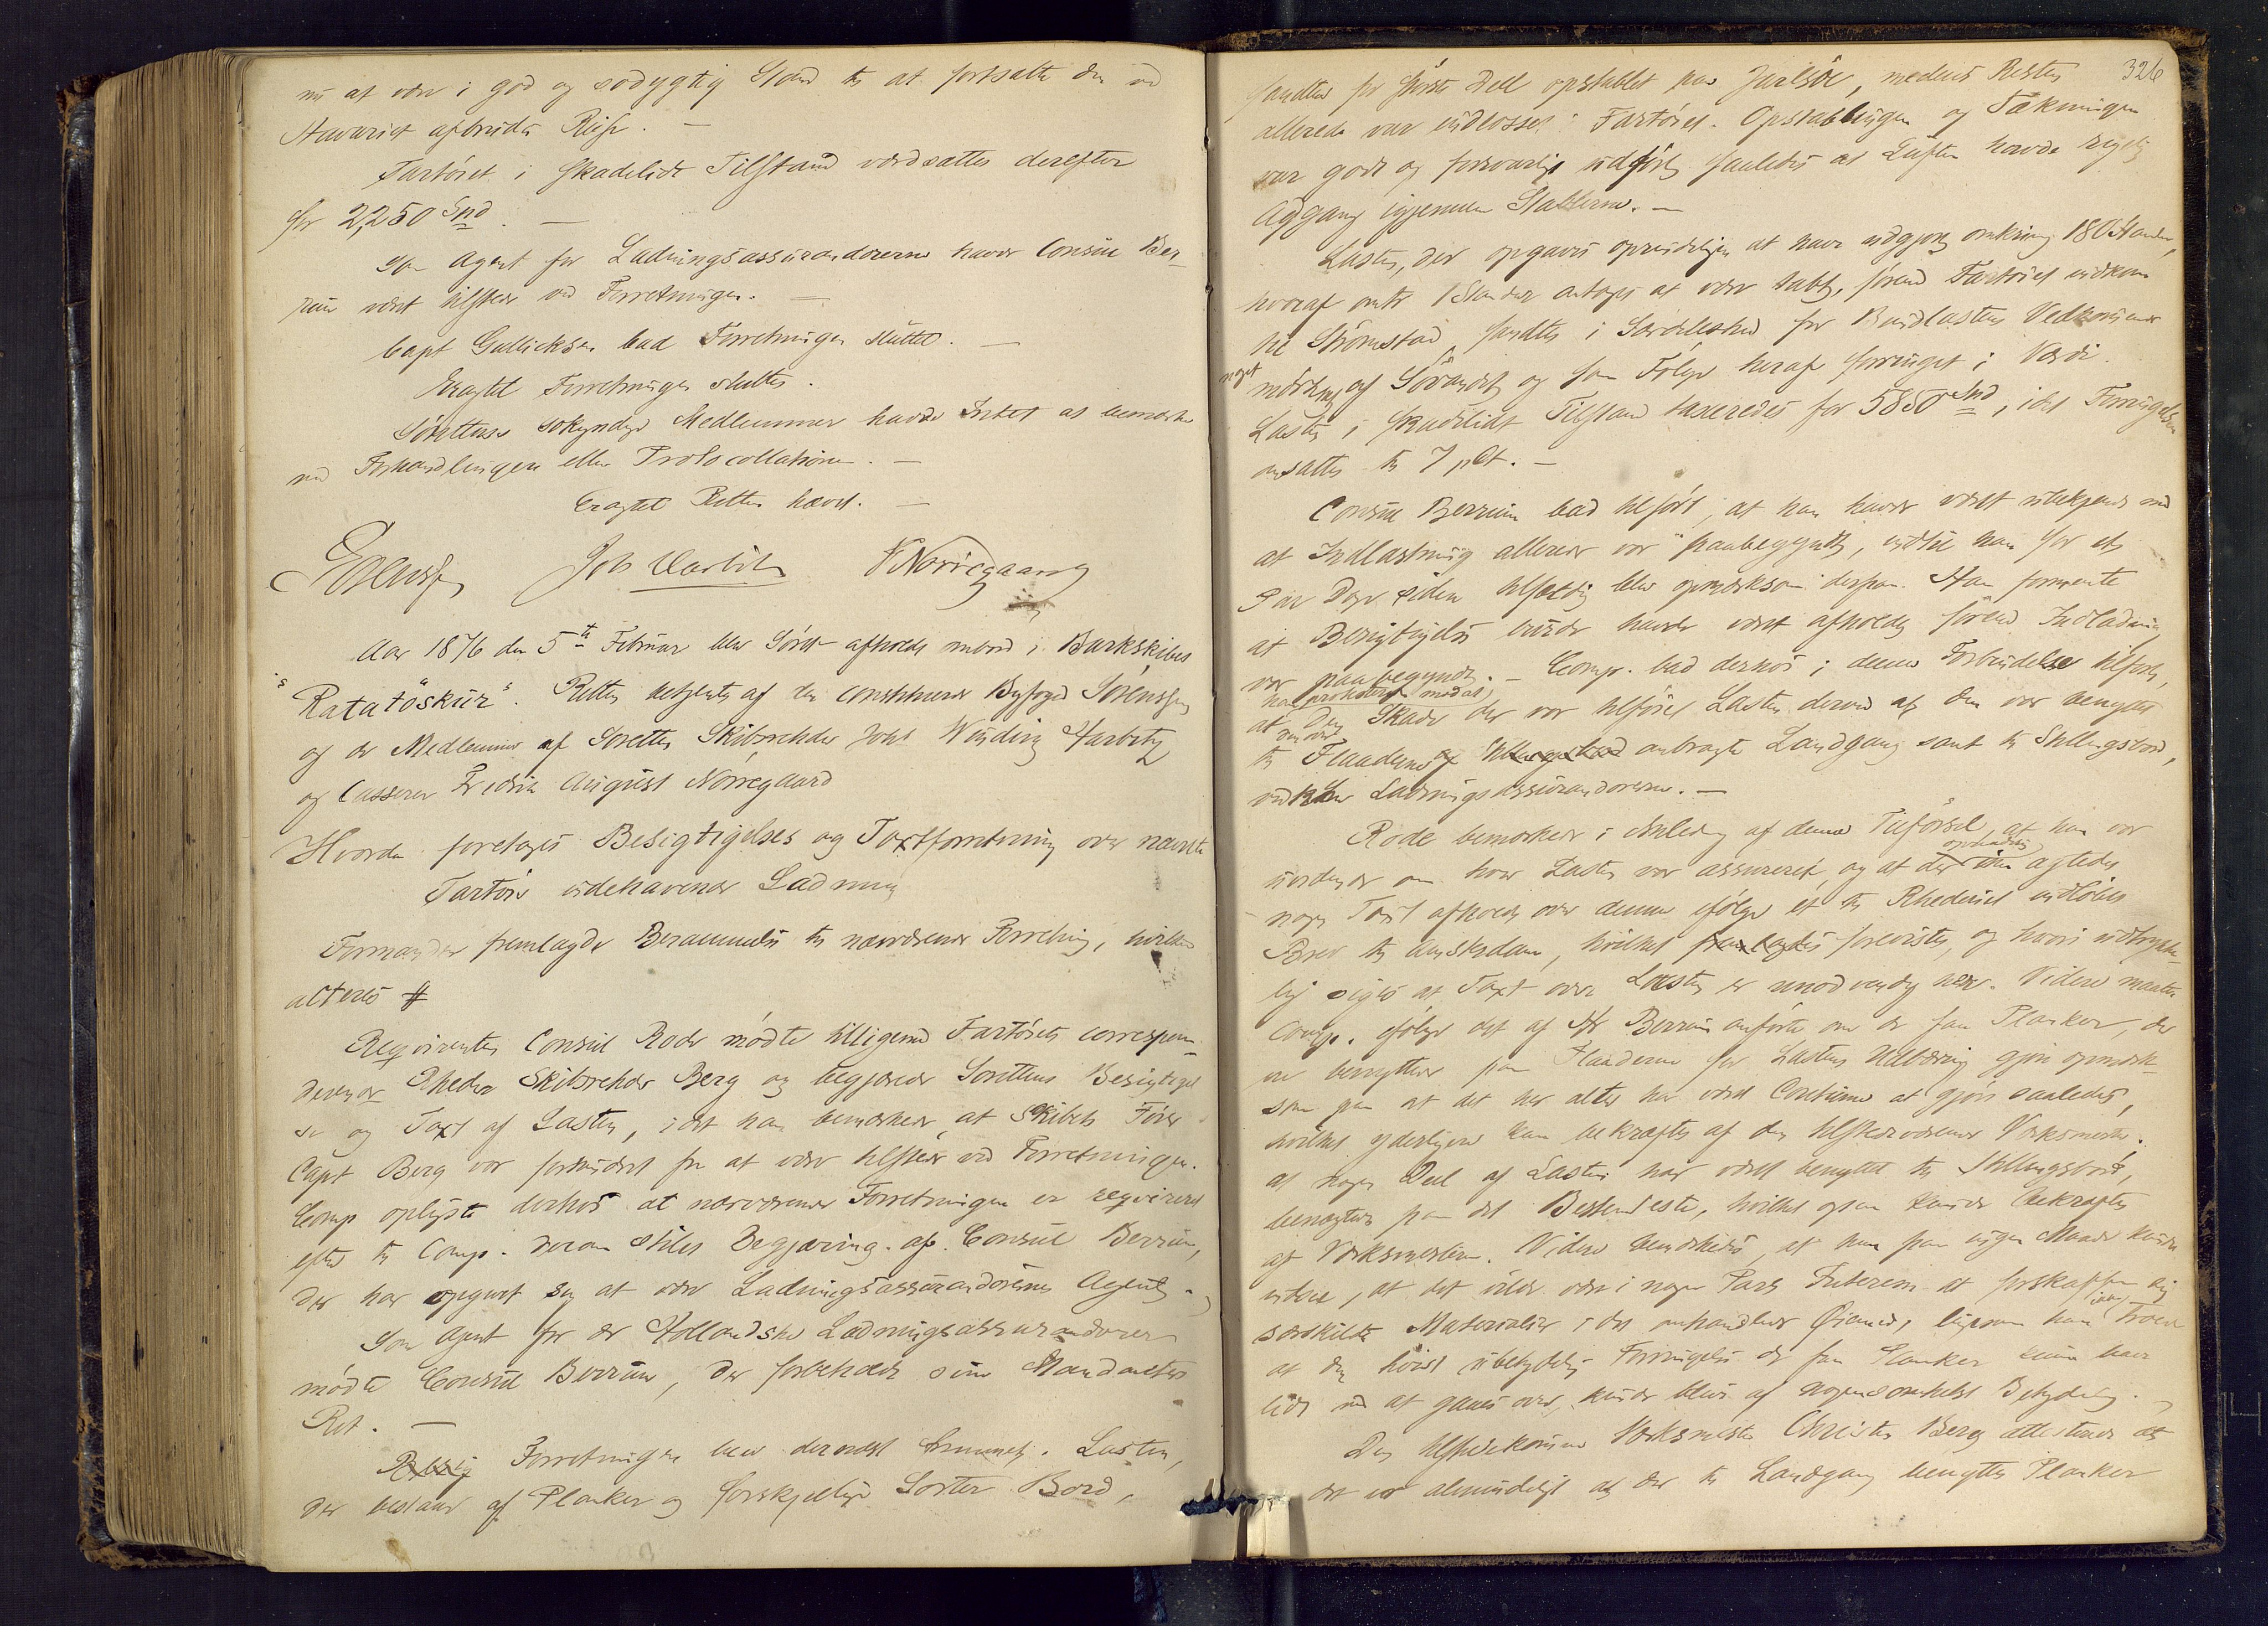 nu at være i god og sødygtig Stand til at fortsætte den ved
Havariet afbrudte Reise. —
Fartöiet i skadelidt Tilstand værdsattes derefter
for 2,250 Spd. —
Som Agent for Ladningsassurandörerne havde Consul Ber-
rum været tilstede ved Forretningen. —
Capt Gullicksen bad Forretningen sluttet. —
Eragtet Forretningen sluttet.
Sörettens søkyndige Medlemmer havde Intet at bemærke
ved Forhandlingen eller Protocollationen. —
Eragtet Retten hævet. —
Sörenssen Joh Harbitz F Nörregaard
Aar 1876 den 5te Februar blev Söret afholdt ombord i Barkskibet
"Ratatöskur". Retten betjentes af den constituerede Byfoged Sörenssen
og de Medlemmer af Söretten Skibsreder Joh Winding Harbitz
og Casserer Fredrik August Nörregaard
Hvorda foretoges Besigtigelses og Taxtforretning over nævnte
Fartöis indehavende Ladning
Formanden fremlagde Berammelse til nærværende Forretning, hvilken
acteres #
Reqvirenten Consul Rode mödte tilligemed Fartöiets correspon-
derende Rheder Skibsreder Berg og begjærede Sörettens Besigtigel
se og Taxt af Lasten, idet han bemærkede, at Skibets Förer
Capt Berg var forhindret fra at være tilstede ved Forretningen.
Comp oplyste derhos at nærværende Forretningen er reqvireret
efter til Comp. derom stilet Begjæring af Consul Berrum,
der har opgivet sig at være Ladningsassurandörernes Agent. -
Som Agent for de Hollandske Ladningsassurandörer
mödte Consul Berrum, der forbeholdt sine Mandanters
Ret. —
Forretningen blev dernæst fremmet. Lasten,
der bestaar af Planker og forskjellige Sorter Bord,
326
fandtes for störste Deel opstablet paa Jælsöe, medens Resten
allerede var indlosset i Fartöiet. Opstablingen og Tækningen
var godt og forsvarligt udfört saaledes at Luften havde rigelig
Adgang igjennem Stablerne. —
Lasten, der opgaves oprindeligen at have udgjort omkring 180 Stander,
hvoraf omtr 1 Stander antoges at være tabt, förend Fartöiet indkom
til Strömstad, fandtes i Særdeleshed for Bundlastens Vedkommende
noget mörknet af Sövandet og som Fölge heraf forringet i Værdi.
Lasten i skadelidt Tilstand taxeredes for 5850 Spd, idet Forringelsen
ansattes til 7 pCt. —
Consul Berrum bad tilfört, at han havde været ubekjendt med
at Indlastning allerede var paabegyndt, indtil han for et
Par Dage siden tilfældig blev opmærksom derpaa. Han formente
at Besigtigelse burde havde været afholdt förend Indladning
var paabegyndt. — Comp. bad derhos i denne Forbindelse tilfört,
at han protesterer mod at den Skade der var tilföiet Lasten derved at den var benyttet
til Flaaderne anbragte Landgang samt til Stillingsbord,
vedkom Ladningsassurandörerne. —
Rode bemærkede i Anledng af denne Tilförsel, at han var
uvidende om hvor Lasten var assureret, og at der oprindelig ikke agtedes
nogen Taxt afholdt over denne ifölge et til Rhederiet indlöbet
Brev til Amsterdam, hvilket forevistes, og hvori udtrykke-
lig siges at Taxt over Lasten er unödvendig her. Videre maatte
Comp. ifölge det af Hr Berrum anförte om de faa Planker, der
ere benyttede paa Flaaderne for Lastens Udbæring gjöre opmærk-
som paa at det her altid har været Coutume at gjöre saaledes,
hvilket yderligere kan bekræftes af den tilstedeværende Værksmester.
at nogen Deel af Lasten har været benyttet til Stillingsbord,
benægtes paa det Bestemteste, hvilket ogsaa kunde bekræftes
af Værksmesteren. Videre bemærkedes, at han paa ingen Maade kunde
indsee, at det vilde være i nogen Parts Interesse at forskaffe sig
særskilte Materialier i det omhandlede Öiemed, ligesom han ikke troede
at den höist ubetydelige Forringelse de faa Planker kunde have
lidt ved at gaaes over, kunde blive af nogensomhelst Betydning.
Den tilstedekomne Værksmester Christen Berg attesterede at
det var almindeligt at der til Landgang benyttes Planker